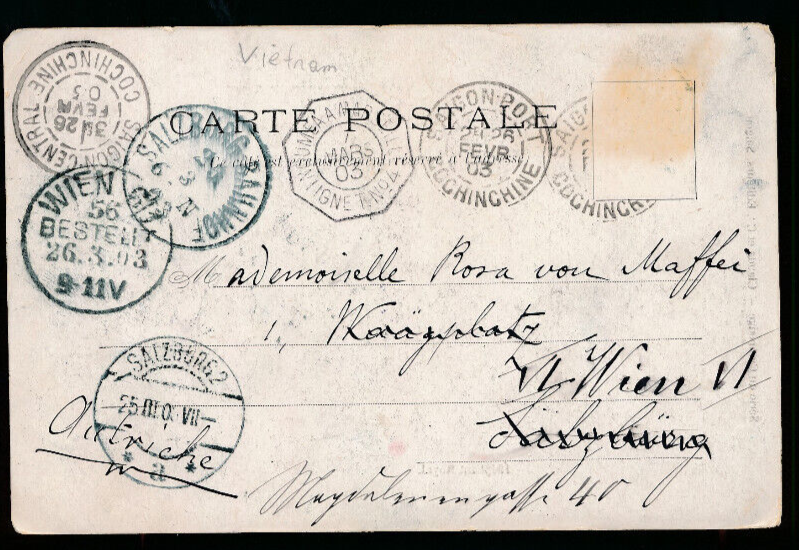 Vietnam
CARTE POSTALE
Ce côté est exclusivement réservé à l'adresse
SAIGON-CENTRAL
3E 26
FEVR
03
COCHINCHINE
SALZBURG BAHNHOF
WIEN
56
BESTELLT
26.3.03
9-11V
MARS
03
LIGNE N No4
SAIGON-PORT
2E 26
FEVR
03
COCHINCHINE
SAIG
COCHINCHI
Mademoiselle Rosa von Maffei
1,
VI Wien VI
Salzburg
Magdalenengasse 40
Autriche
SALZBURG 2
25 III 0 VII-
* a *